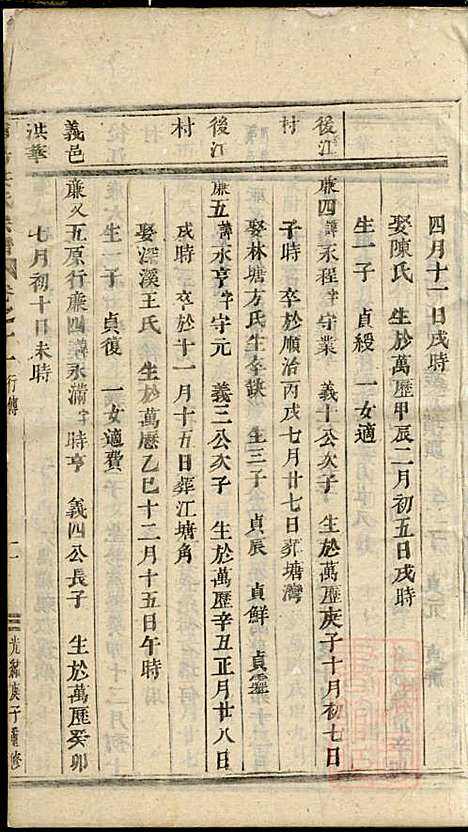 四月十一日戌時
娶陳氏 生於萬歷甲辰二月初五日戌時
生一子 貞綬 一女適
後江村
廉四諱永程字守業 義十公次子 生於萬歷庚子十月初七日
子時 卒於順治丙戌七月廿七日葬塘灣
娶林塘方氏生卒缺 生三子 貞辰 貞鮮 貞靈
後江村
廉五諱永亨字守元 義三公次子 生於萬歷辛丑正月廿八日
戌時 卒於十一月十五日葬江塘角
娶深溪王氏 生於萬歷乙巳十二月十五日午時
生一子 貞復 一女適費
義邑洪華
廉又五原行廉四諱永滿字時亨 義四公長子 生於萬歷癸卯
七月初十日未時
行傳
光緒庚子重修